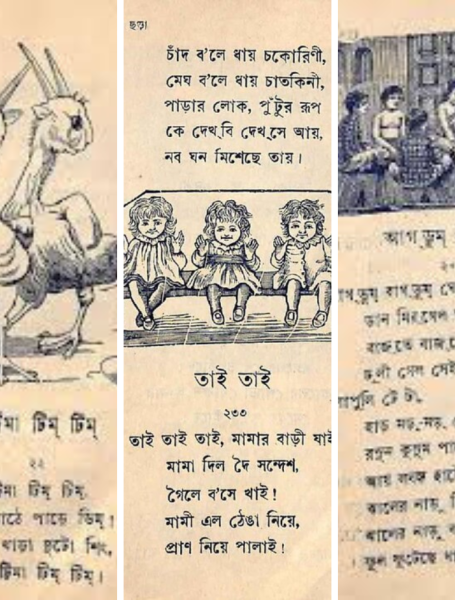 মা টিম্ টিম্
২২
টিমা টিম্ টিম্,
পাড়ে ডিম্!
দুটো শিং,
টিমা টিম্ টিম্।
ছড়া
চাঁদ ব'লে ধায় চকোরিণী,
মেঘ ব'লে ধায় চাতকিনী,
পাড়ার লোক, পুঁটুর রূপ
কে দেখ্‌বি দেখ্‌সে আয়,
নব ঘন মিশেছে তায়।
তাই তাই
২৩৩
তাই তাই তাই, মামার বাড়ী যাই
মামা দিল দৈ সন্দেশ,
গৈলে ব'সে খাই!
মামী এল ঠেঙা নিয়ে,
প্রাণ নিয়ে পালাই!
আগ্‌ডুম্
বাগ্‌ডুম্
ডান মিরগেল
বাজতে
ঢুলী গেল সেই
হাড় মড়-মড়,
আয়
ঝালের নাড়ু,
ঝালের নাড়ু,
ফুল ফুটেছে